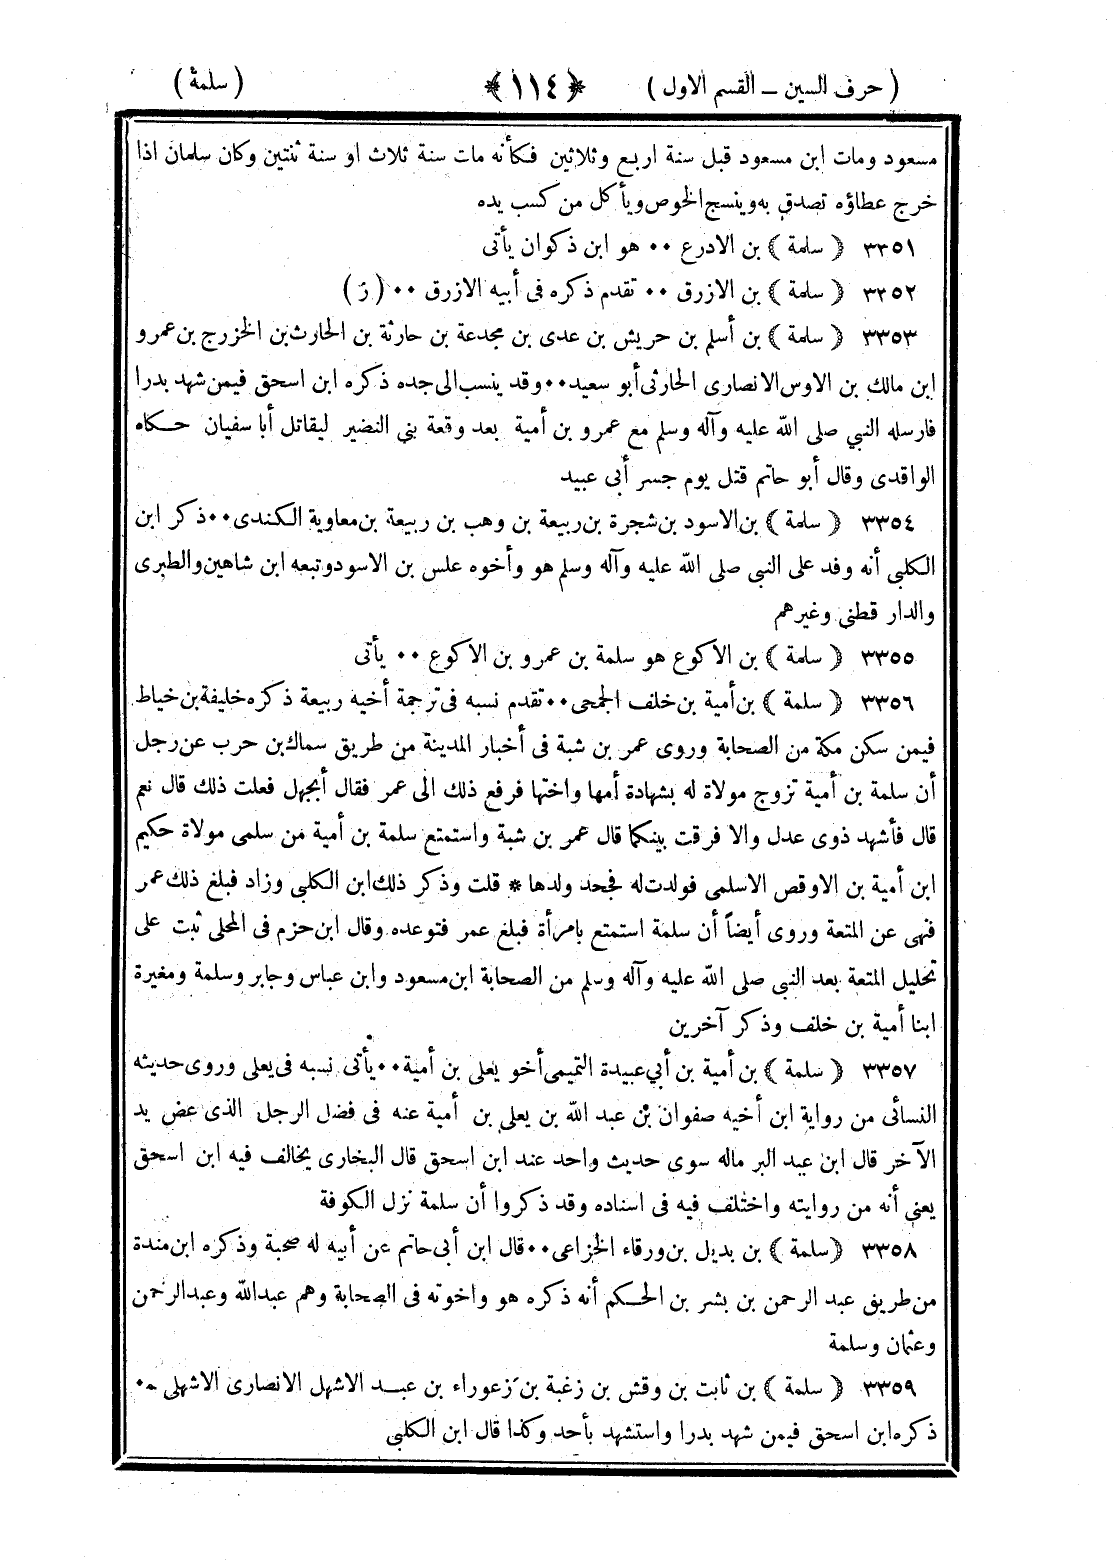 ( حرف السين ــ القسم الاول ) ﴿ ١١٤ ﴾ ( سلمة )
مسعود ومات ابن مسعود قبل سنة اربع وثلاثين فكأنه مات سنة ثلاث او سنة ثنتين وكان سلمان اذا
خرج عطاؤه تصدق به وينسج الخوص ويأكل من كسب يده
٣٣٥١ ﴿ سلمة ﴾ بن الادرع ٠٠ هو ابن ذكوان يأتى
٣٣٥٢ ﴿ سلمة ﴾ بن الازرق ٠٠ تقدم ذكره فى أبيه الازرق ٠٠ ( ز )
٣٣٥٣ ﴿ سلمة ﴾ بن أسلم بن حريش بن عدى بن مجدعة بن حارثة بن الحارث بن الخزرج بن عمرو
ابن مالك بن الاوس الانصارى الحارثى أبو سعيد ٠٠ وقد ينسب الى جده ذكره ابن اسحق فيمن شهد بدرا
فارسله النبي صلى الله عليه وآله وسلم مع عمرو بن أمية بعد وقعة بني النضير ليقاتل أبا سفيان حكاه
الواقدى وقال أبو حاتم قتل يوم جسر أبى عبيد
٣٣٥٤ ﴿ سلمة ﴾ بن الاسود بن شجرة بن ربيعة بن وهب بن ربيعة بن معاوية الكندى ٠٠ ذكر ابن
الكلبى أنه وفد على النبى صلى الله عليه وآله وسلم هو وأخوه علس بن الاسود وتبعه ابن شاهين والطبرى
والدار قطنى وغيرهم
٣٣٥٥ ﴿ سلمة ﴾ بن الاكوع هو سلمة بن عمرو بن الاكوع ٠٠ يأتى
٣٣٥٦ ﴿ سلمة ﴾ بن أمية بن خلف الجمحى ٠٠ تقدم نسبه فى ترجمة أخيه ربيعة ذكره خليفة بن خياط
فيمن سكن مكة من الصحابة وروى عمر بن شبة فى أخبار المدينة من طريق سماك بن حرب عن رجل
أن سلمة بن أمية تزوج مولاة له بشهادة أمها واختها فرفع ذلك الى عمر فقال أبجهل فعلت ذلك قال نعم
قال فأشهد ذوى عدل والا فرقت بينكما قال عمر بن شبة واستمتع سلمة بن أمية من سلمى مولاة حكيم
ابن أمية بن الاوقص الاسلمى فولدت له فجحد ولدها * قلت وذكر ذلك ابن الكلبى وزاد فبلغ ذلك عمر
فنهى عن المتعة وروى أيضاً أن سلمة استمتع بامرأة فبلغ عمر فتوعده وقال ابن حزم فى المحلى ثبت على
تحليل المتعة بعد النبى صلى الله عليه وآله وسلم من الصحابة ابن مسعود وابن عباس وجابر وسلمة ومغيرة
ابنا أمية بن خلف وذكر آخرين
٣٣٥٧ ﴿ سلمة ﴾ بن أمية بن أبي عبيدة التميمى أخو يعلى بن أمية ٠٠ يأتى نسبه فى يعلى وروى حديثه
النسائى من رواية ابن أخيه صفوان بن عبد الله بن يعلى بن أمية عنه فى فضل الرجل الذى عض يد
الآخر قال ابن عبد البر ماله سوى حديث واحد عند ابن اسحق قال البخارى يخالف فيه ابن اسحق
يعنى أنه من روايته واختلف فيه فى اسناده وقد ذكروا أن سلمة نزل الكوفة
٣٣٥٨ ﴿ سلمة ﴾ بن بديل بن ورقاء الخزاعى ٠٠ قال ابن أبى حاتم عن أبيه له صحبة وذكره ابن مندة
من طريق عبد الرحمن بن بشر بن الحكم أنه ذكره هو واخوته فى الصحابة وهم عبدالله وعبدالرحمن
وعثمان وسلمة
٣٣٥٩ ﴿ سلمة ﴾ بن ثابت بن وقش بن زغبة بن زعوراء بن عبد الاشهل الانصارى الاشهلى ٠٠
ذكره ابن اسحق فيمن شهد بدرا واستشهد بأحد وكذا قال ابن الكلبى